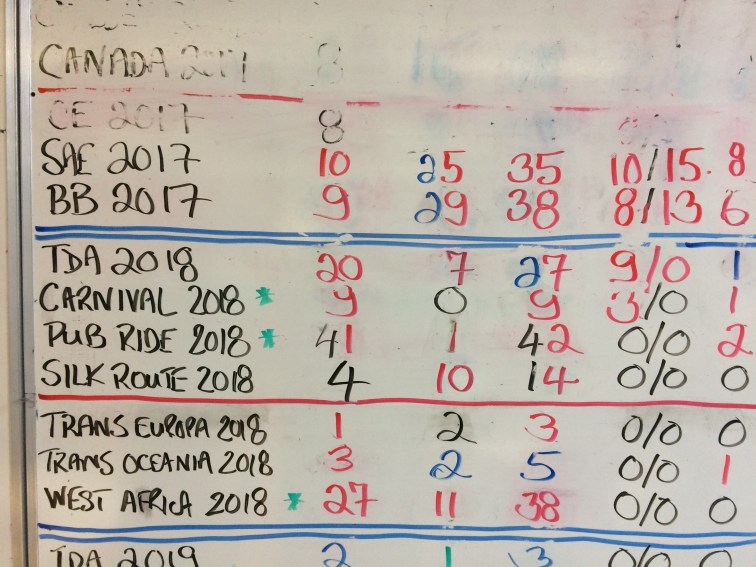 CANADA 2017 8
CE 2017 8
SAE 2017 10 25 35 10/15 8
BB 2017 9 29 38 8/13 6
TDA 2018 20 7 27 9/0 1
CARNIVAL 2018 * 9 0 9 3/0 1
PUB RIDE 2018 * 41 1 42 0/0 2
SILK ROUTE 2018 4 10 14 0/0 0
TRANS EUROPA 2018 1 2 3 0/0 0
TRANS OCEANIA 2018 3 2 5 0/0 1
WEST AFRICA 2018 * 27 11 38 0/0 0
TDA 2019 2 1 3 0/0 0